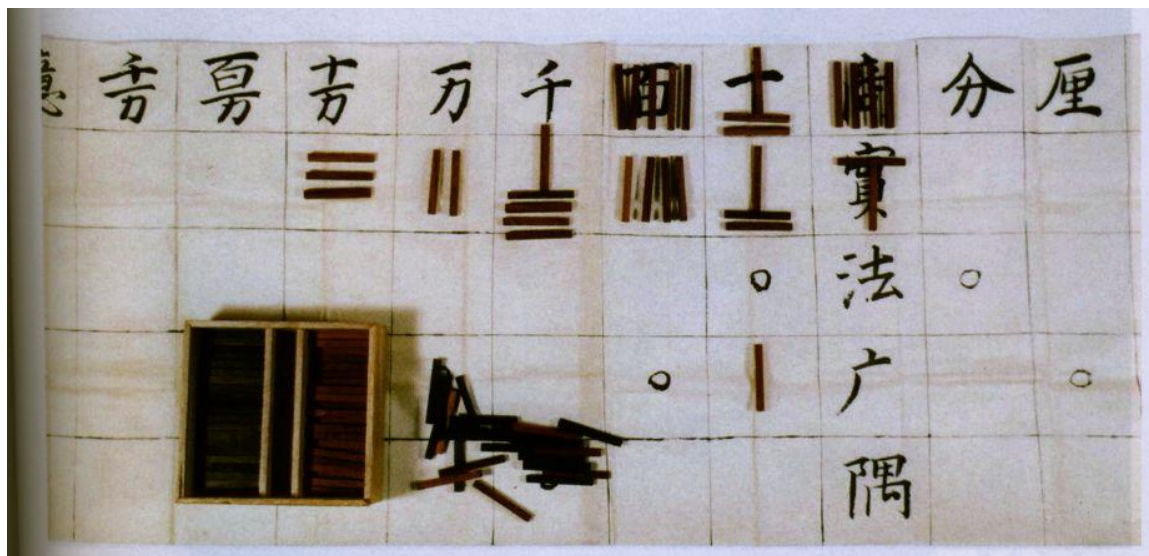 億 千万 百万 十万 万 千 百 十 商 分 厘
實
法
广
隅